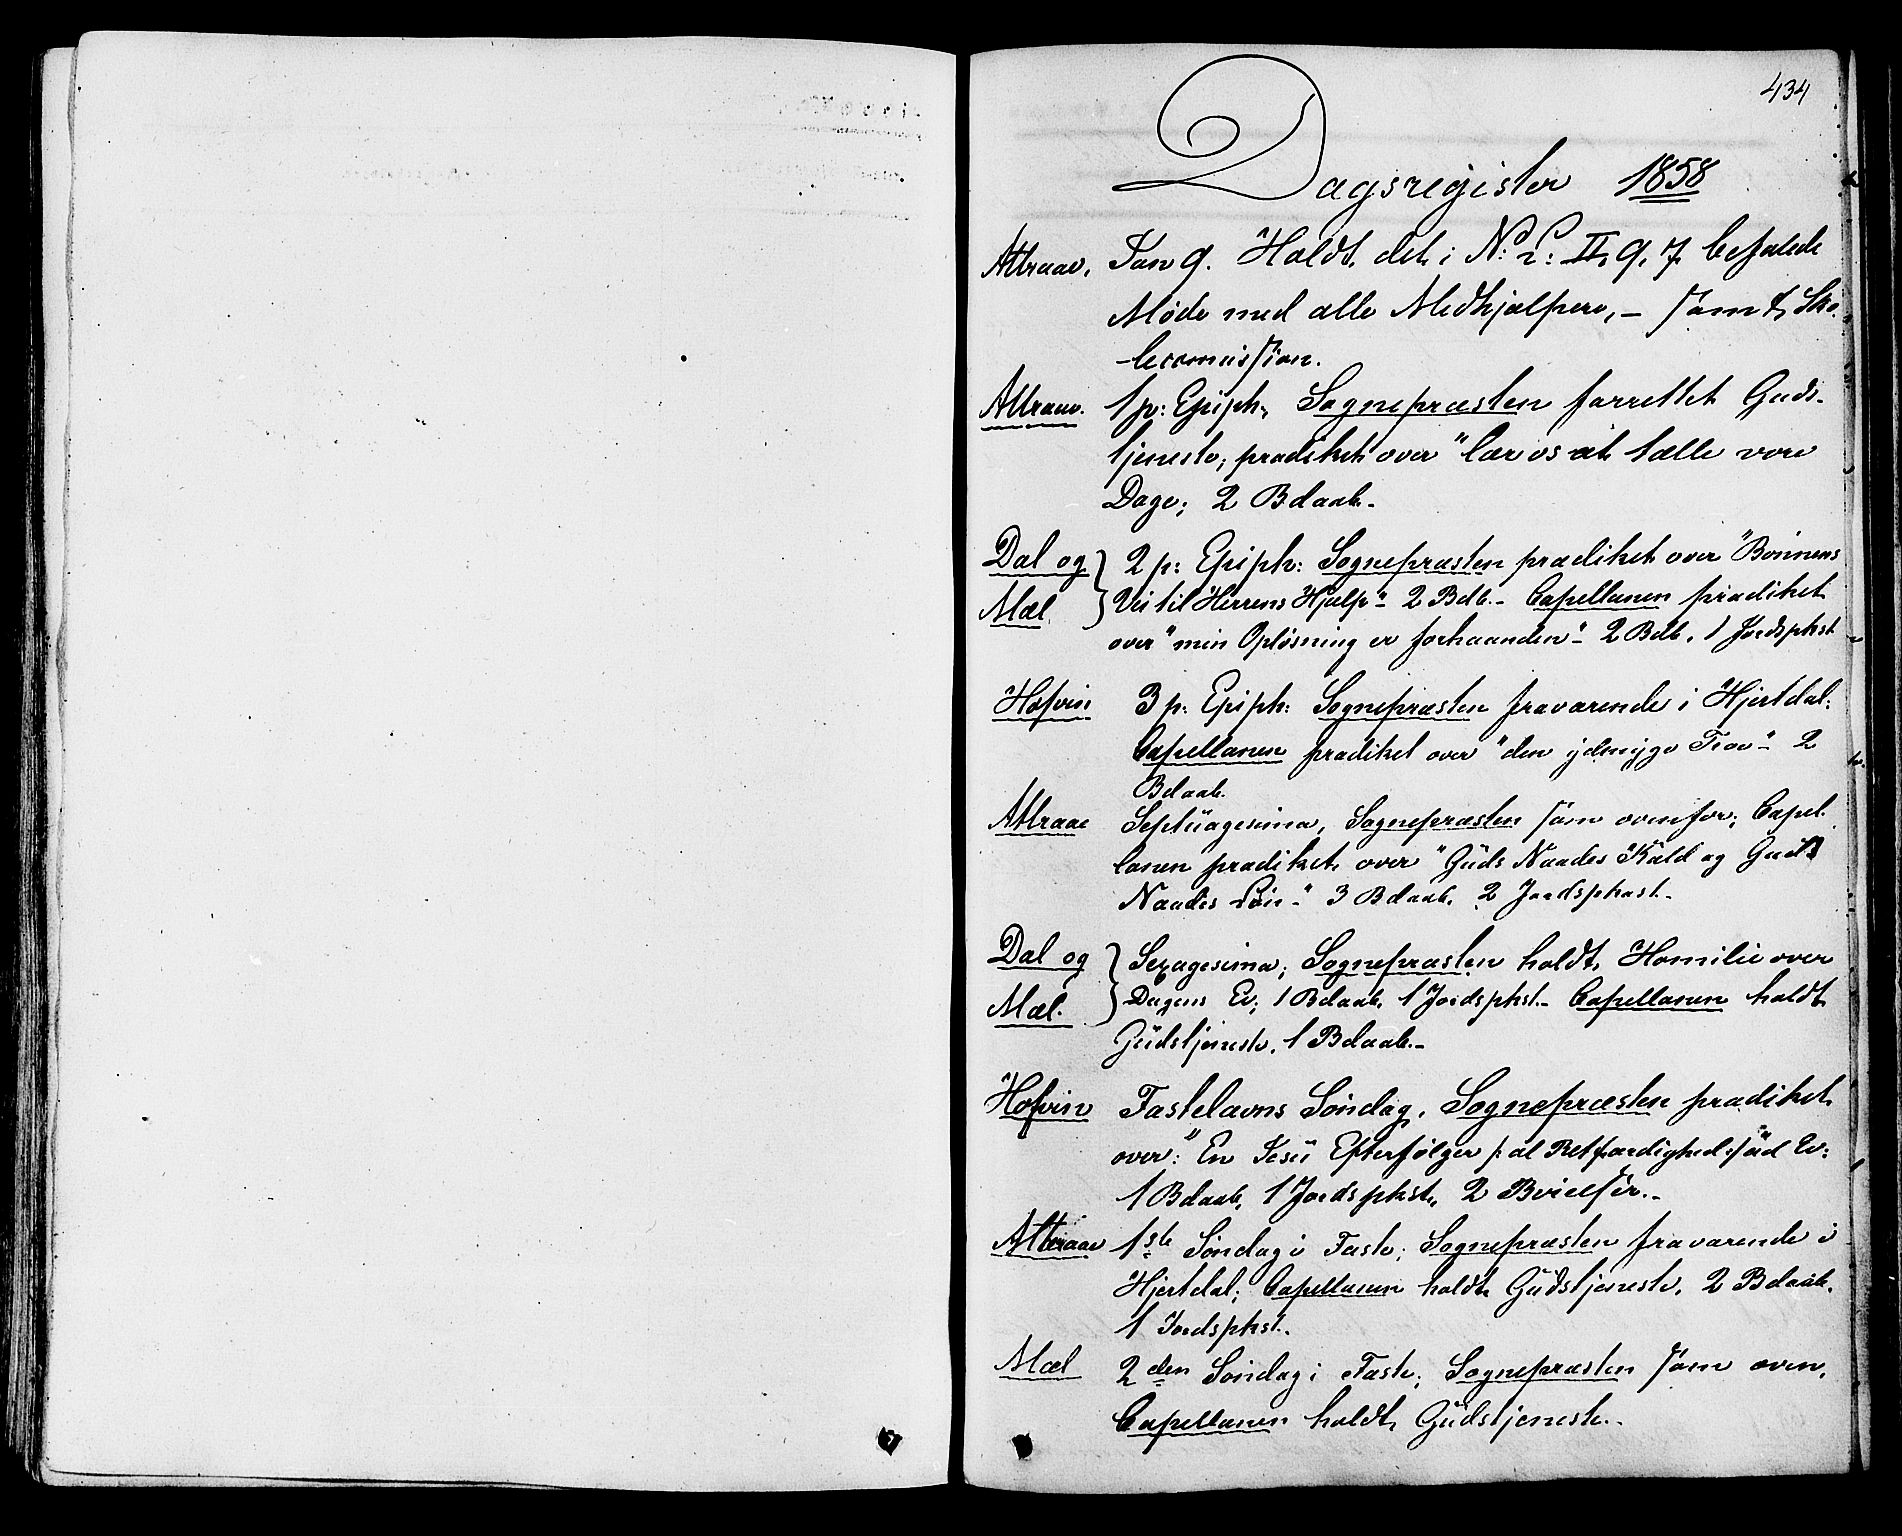 434
Dagsregister 1858
Attraae. Jan 9. Holdt det i N: L: II, 9, 7 befalede
Møde med alle Medhjælpere, – samt Sko-
lecomission.
Attraae. 1 p: Epiph, Sognepræsten forrettet Guds-
tjeneste; prædiket over "lær os at tælle vore
Dage; 2 Bdaab.–
Dal og 2 p: Epiph: Sognepræsten prædiket over "Bønnens
Mæl. Vei til Herrens Hjælp"– 2 Bdb.– Capellanen prædiket
over "min Opløsning er forhaanden"– 2 Bdb. 1 Jordspkst
Hofvin 3 p. Epiph: Sognepræsten fraværende i Hjertdal:
Capellanen prædiket over "den ydmyge Troe"– 2
Bdaab.
Attraae Septuagesima, Sognepræsten som ovenfor; Capel-
lanen prædiket over "Guds Naades Kald og Guds
Naades Løn–" 3 Bdaab. 2 Jordspkast.–
Dal og Sexagesima; Sognepræsten holdt Homilie over
Mæl. Dagens Ev; 1 Bdaab. 1 Jordspkst.– Capellanen holdt
Gudstjeneste. 1 Bdaab.–
Hofvin Fastelavns Søndag. Sognepræsten prædiket
over: "En Jesu Efterfølger /: al Retfærdighed :/ ad Ev:
1 Bdaab, 1 Jordspkst, 2 Bvielser.–
Attraae 1ste Søndag i Faste; Sognepræsten fraværende i
Hjertdal; Capellanen holdt Gudstjeneste. 2 Bdaab.
1 Jordspkst.
Mæl 2den Søndag i Faste; Sognepræsten som oven,
Capellanen holdt Gudstjeneste.–